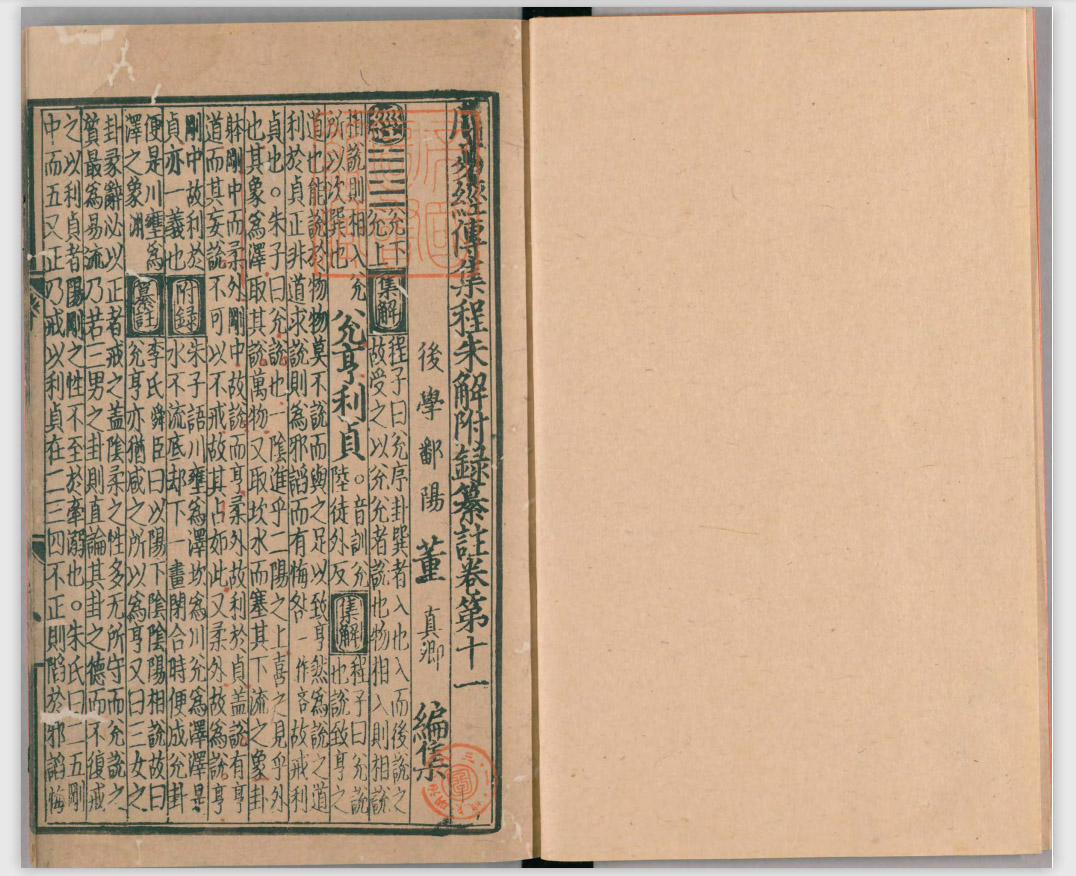 周易經傳集程朱解附録纂註卷第十一
後學鄱陽董真卿編集
經
䷹
兌下
兌上
集解
程子曰兌序卦巽者入也入而後說之
故受之以兌兌者說也物相入則相說
相說則相入兌
所以次巽也
兌亨利貞
。音訓兌
陸徒外反
集解
程子曰兌說
也說致亨之
道也能說於物物莫不說而與之足以致亨然為說之道
利於貞正非道求說則為邪諂而有悔咎一作吝故戒利
貞也。朱子曰兌說也一陰進乎二陽之上喜之見乎外
也其象為澤取其說萬物又取坎水而塞其下流之象卦
躰剛中而柔外剛中故說而亨柔外故利於貞蓋說有亨
道而其妄說不可以不戒故其占如此又柔外故為說亨
剛中故利於
貞亦一義也
附録
朱子語川壅為澤坎為川兌為澤澤是
水不流底却下一畫閉合時便成兌卦
便是川壅為
澤之象淵
纂註
李氏舜臣曰以陽下陰陰陽相說故曰
兌亨亦猶咸之所以為亨又曰三女之
卦彖辭必以正者戒之蓋陰柔之性多无所守而兌說之
質最為易流乃若三男之卦則直論其卦之德而不復戒
之以利貞者陽剛之性不至於牽溺也。朱氏曰二五剛
中而五又正乃戒以利貞在二三四不正則陷於邪諂悔